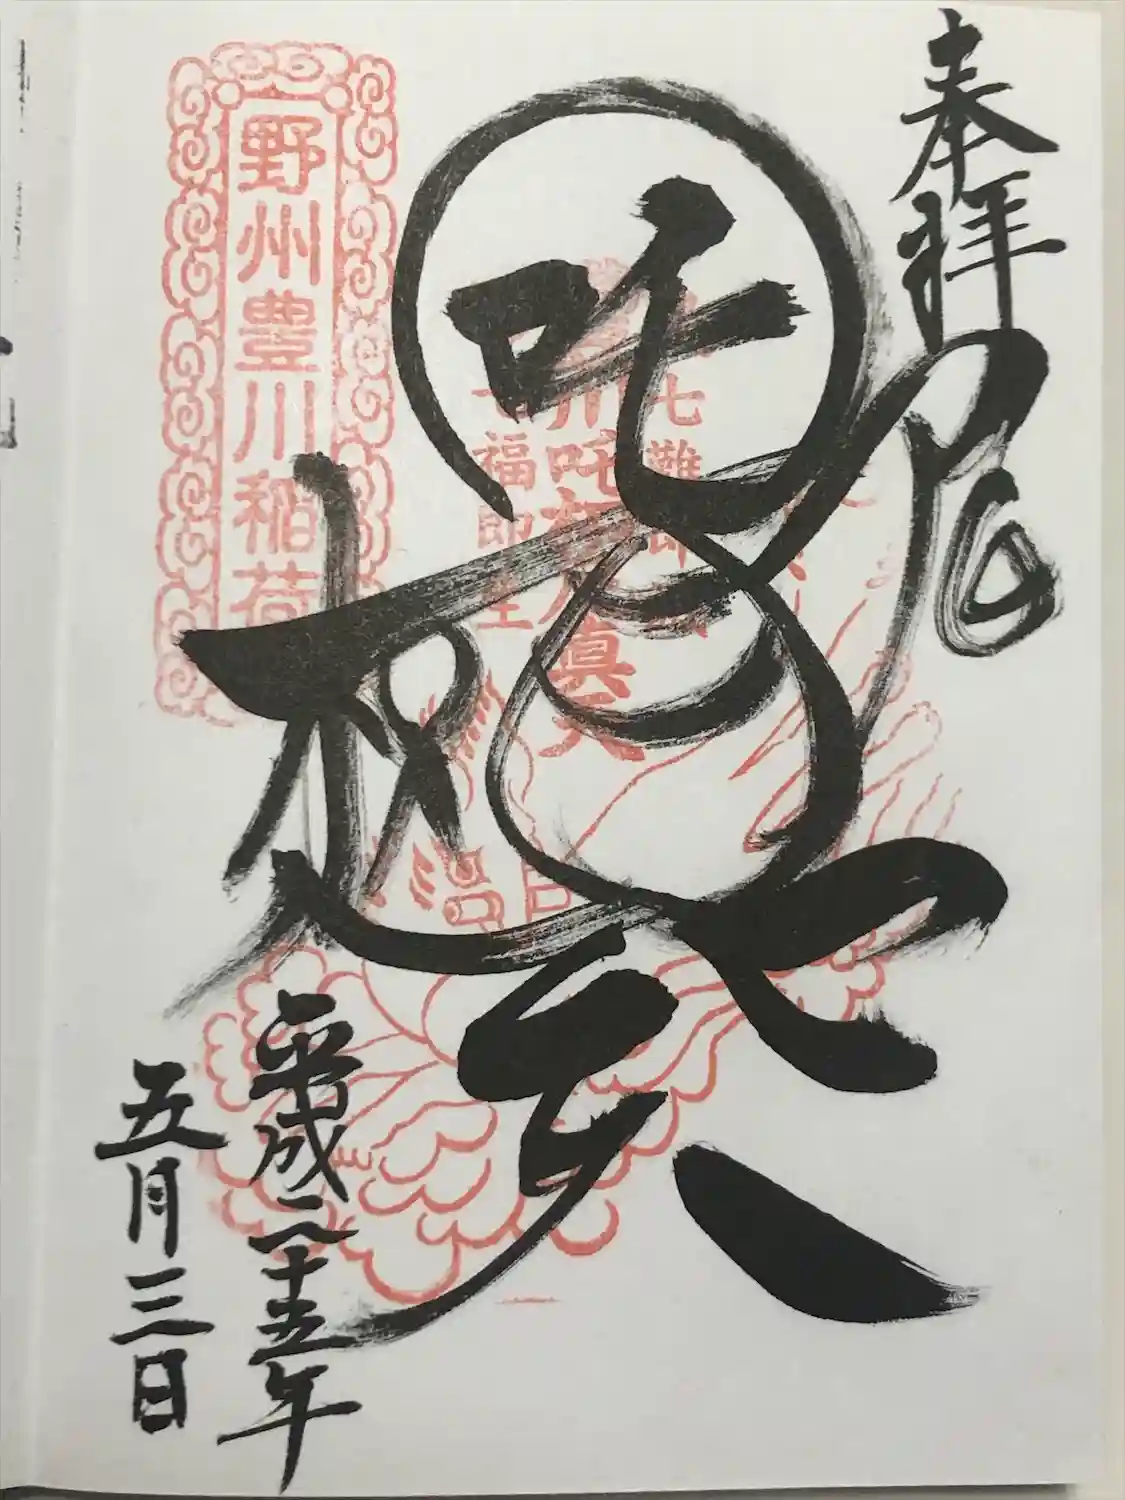 奉拝
吒枳尼真天
野州豊川稲荷
七難即滅
吒枳尼眞天
七福即生
平成二十五年
五月三日